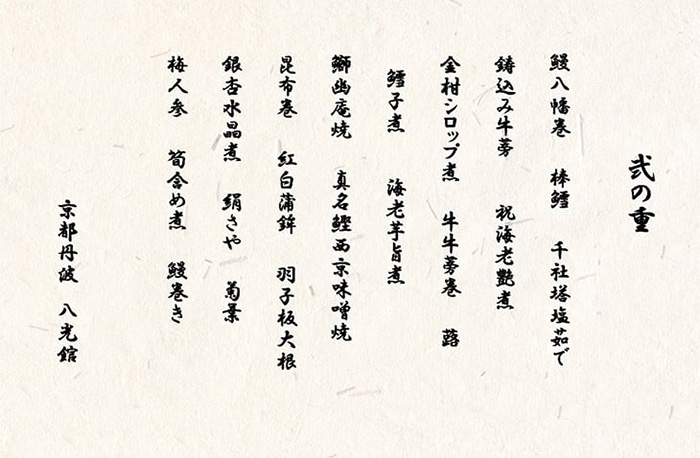 弐の重
鰻八幡巻 棒鱈 千社塔塩茹で
鋳込み牛蒡 祝海老艶煮
金柑シロップ煮 牛牛蒡巻 蕗
鱈子煮 海老芋旨煮
鰤幽庵焼 真名鰹西京味噌焼
昆布巻 紅白蒲鉾 羽子板大根
銀杏水晶煮 絹さや 菊葉
梅人参 筍含め煮 鰻巻き
京都丹波 八光館